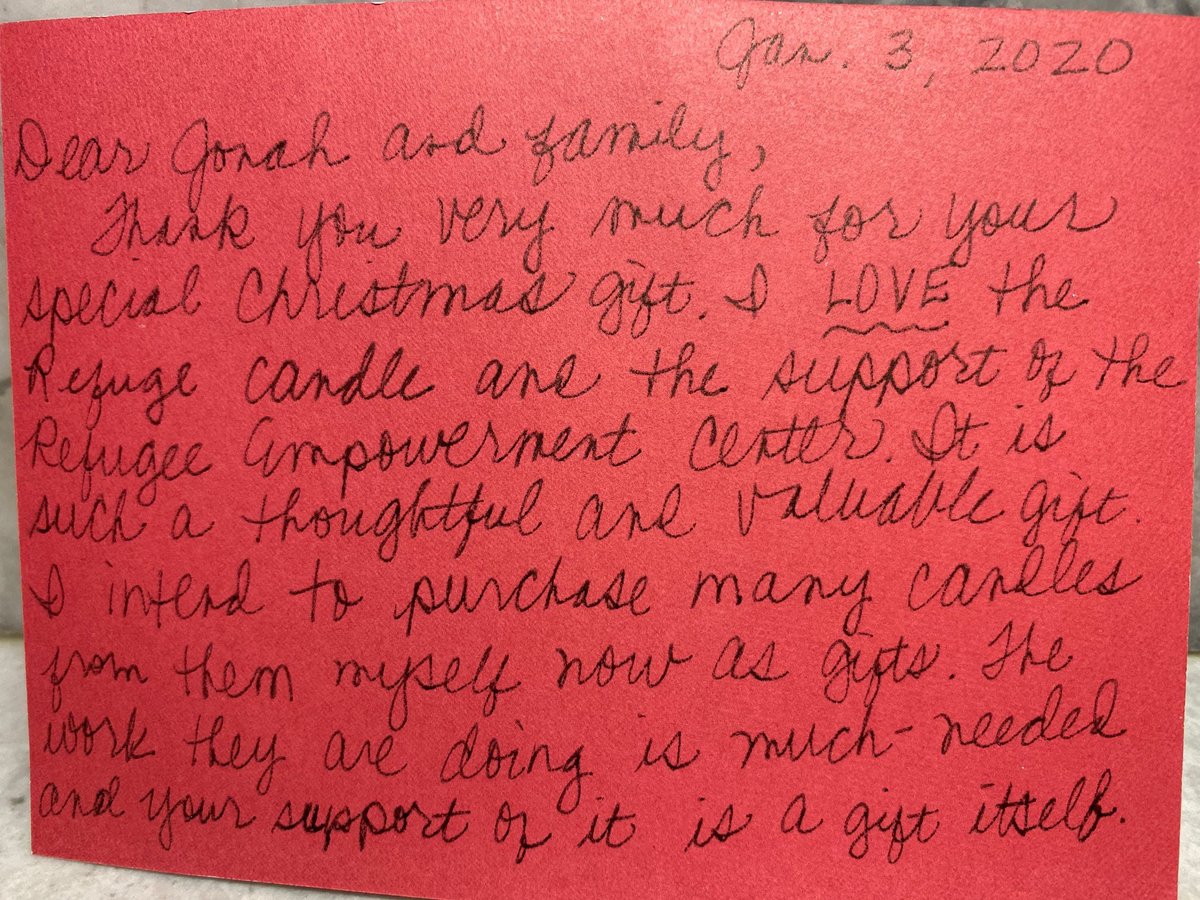 Jan. 3, 2020
Dear Jonah and family,
Thank you very much for your
special Christmas gift. I LOVE the
Refuge candle and the support of the
Refugee Empowerment Center. It is
such a thoughtful and valuable gift.
I intend to purchase many candles
from them myself now as gifts. The
work they are doing is much-needed
and your support of it is a gift itself.